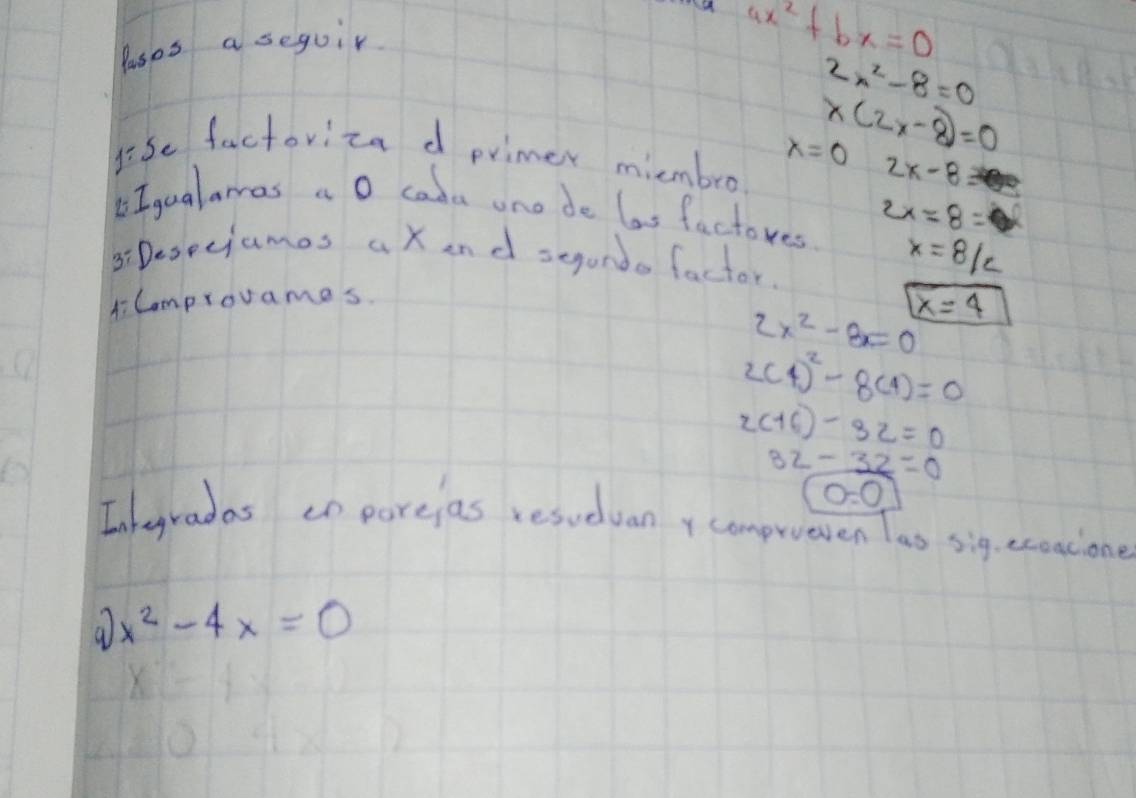 ax² + bx = 0
Pasos a seguir.
2x² - 8 = 0
x(2x - 8) = 0
x = 0 2x - 8 =
2x = 8 =
x = 8/2
x = 4
1: Se factoriza el primer miembro.
2: Igualamos a 0 cada uno de los factores.
3: Despejamos a X en el segundo factor.
4: Comprovamos.
2x² - 8x = 0
2(4)² - 8(4) = 0
2(16) - 32 = 0
32 - 32 = 0
0=0
Integrados en parejas resuelvan y comprueven las sig. ecoacione
a) x² - 4x = 0